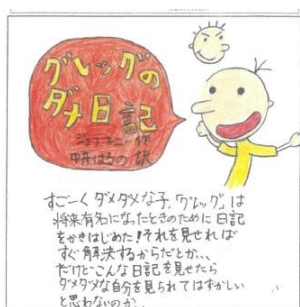 グレッグの
ダメ日記
ジェフ・キニー 作
中井はるの 訳
すごーくダメダメな子,グレッグは
将来有名になったときのために日記
をかきはじめた!それを見せれば
すぐ解決するからだとか、、
だけどこんな日記を見せたら
ダメダメな自分を見られてはずかしい
と思わないのか、、